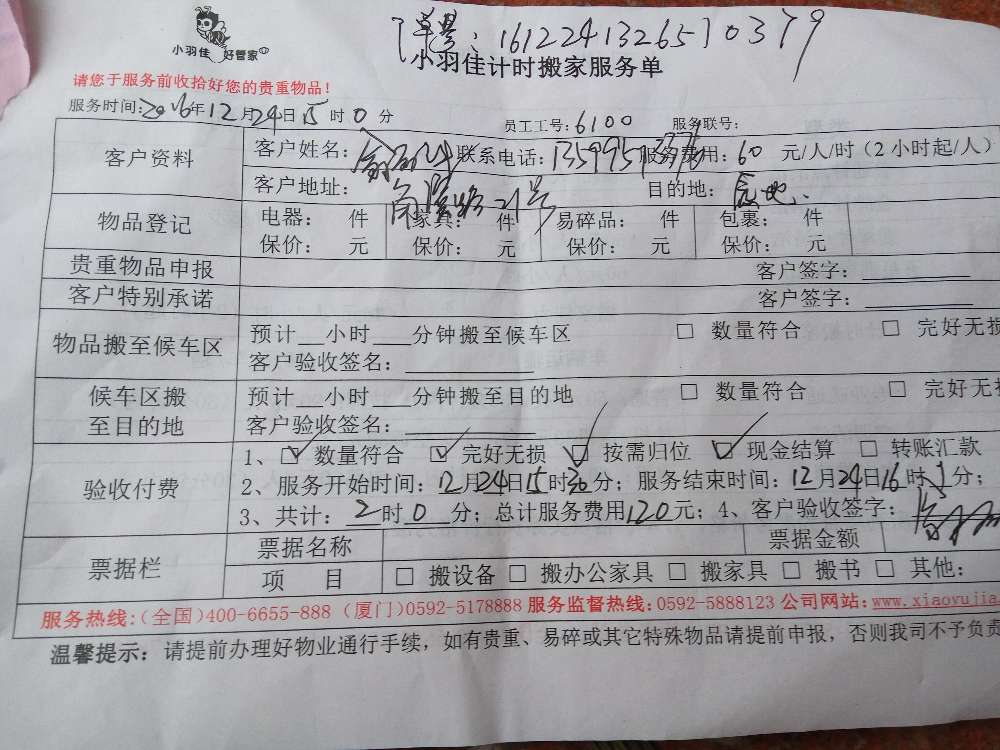 小羽佳 好管家
单号：1612241326510379
小羽佳计时搬家服务单
请您于服务前收拾好您的贵重物品！
服务时间：2016年12月24日15时0分 员工工号：6100 服务联号：
客户资料 客户姓名： 联系电话： 服务费用：60元/人/时（2小时起/人）
客户地址： 21号 目的地：
物品登记 电器： 件 家具： 件 易碎品： 件 包裹： 件
保价： 元 保价： 元 保价： 元 保价： 元
贵重物品申报 客户签字：
客户特别承诺 客户签字：
物品搬至候车区 预计__小时___分钟搬至候车区 □ 数量符合 □ 完好无损
客户验收签名：
候车区搬至目的地 预计__小时___分钟搬至目的地 □ 数量符合 □ 完好无损
客户验收签名：
验收付费 1、☑ 数量符合 ☑ 完好无损 ☑ 按需归位 ☑ 现金结算 □ 转账汇款
2、服务开始时间：12月24日15时30分；服务结束时间：12月24日16时 分；
3、共计：2时0分；总计服务费用120元；4、客户验收签字：
票据栏 票据名称 票据金额
项 目 □ 搬设备 □ 搬办公家具 □ 搬家具 □ 搬书 □ 其他：
服务热线：（全国）400-6655-888（厦门）0592-5178888 服务监督热线：0592-5888123 公司网站：www.xiaoyujia
温馨提示：请提前办理好物业通行手续，如有贵重、易碎或其它特殊物品请提前申报，否则我司不予负责